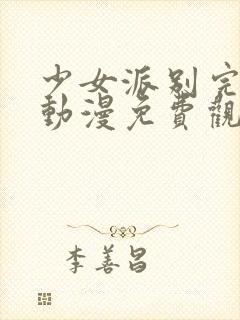 少女派别完
動漫免費觀
李善昌